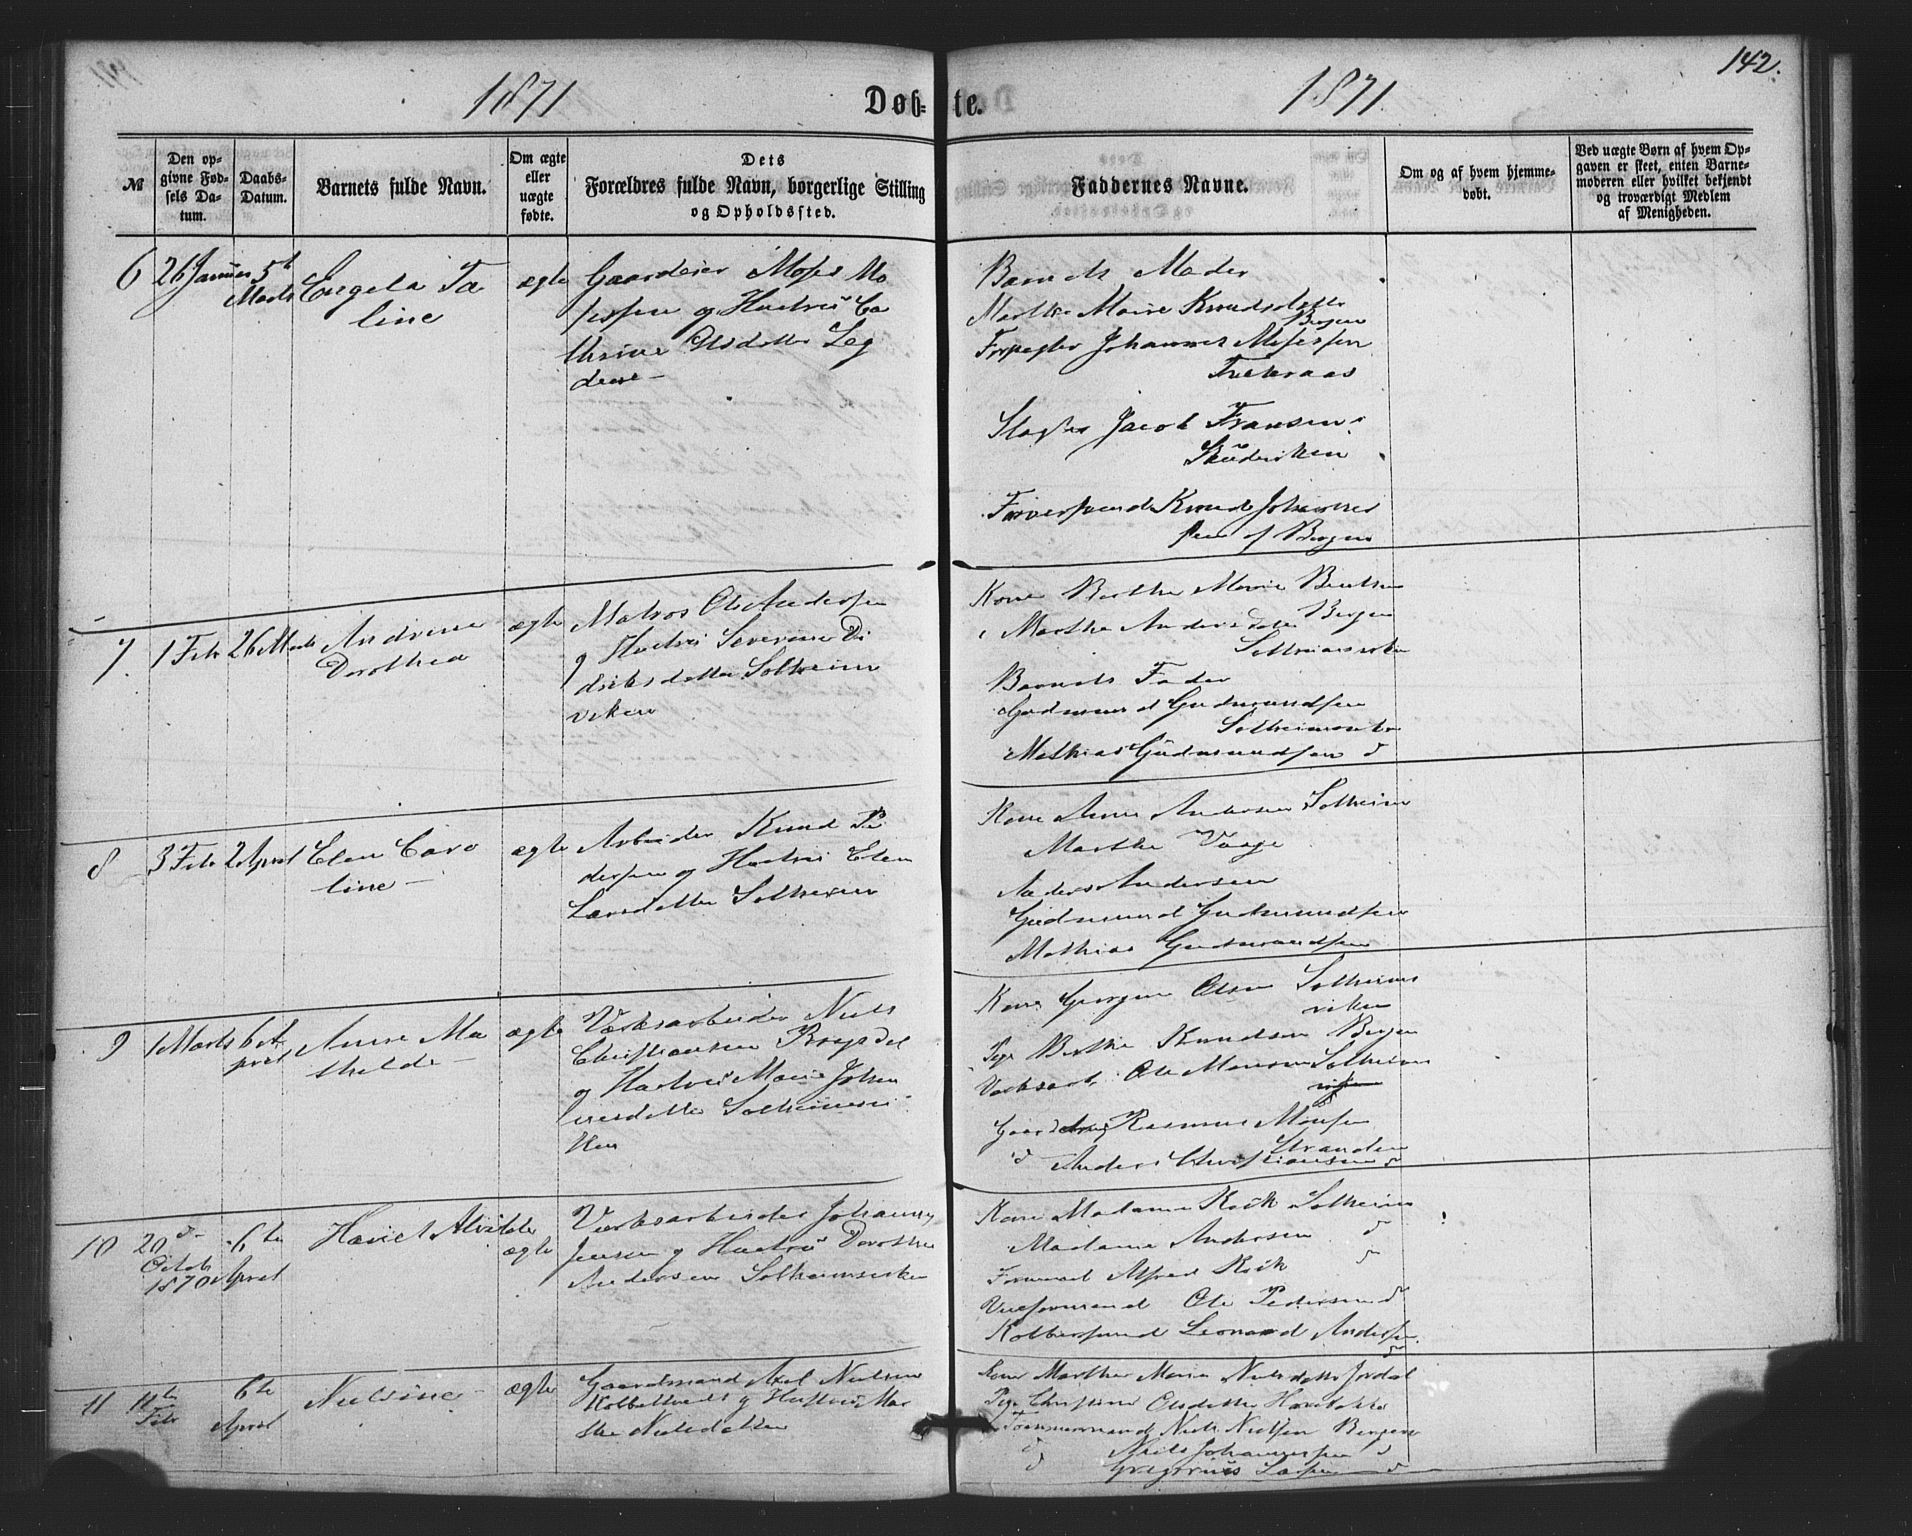 142.
1871
1871
Døb-
te.
№
Den op-
givne Fød-
sels Da-
tum.
Daabs-
Datum.
Barnets fulde Navn.
Om ægte
eller
uægte
fødte.
Dets
Forældres fulde Navn, borgerlige Stilling
og Opholdssted.
Faddernes Navne.
Om og af hvem hjemme-
døbt.
Ved uægte Børn af hvem Op-
gaven er skeet, enten Barne-
moderen eller hvilket bekjendt
og troværdigt Medlem
af Menigheden.
6
26 Januar
5t
Marts
Engela Ta
line
ægte
Gaardeier Moses Mo
sessen og Hustru Ca
thrine Olsdatter Læg
dene
Barnets Moder
Marthe Marie Knudsdatter
Bergen
Forpagter Johannes Mosessen
Slagter Jacob Fransen
Farversvend Knud Johannes
sen af Bergen
7
1 Febr
26 Marts
Andrine
Dorothea
ægte
Matros Ole Andersen
og Hustru Severine Di
driksdatter Solheims
viken
Kone Berthe Marie Bentsen
Bergen
Marthe Andersdatter
Solheimsviken
Barnets Fader
Gudmund Gudmundsen
Solheimsviken
Mathias Gudmundsen d
8
3 Febr
2 April
Elen Caro
line
ægte
Arbeider Knud Pe
dersen og Hustru Elen
Larsdatter Solheim
Kone Anne Andersen Solheim
Marthe Vaage
Anders Andersen
Gudmund Gudmundsen
Mathias Gudmundsen
9
1 Marts
6 A
pril
Anne Ma
thilde
ægte
Værksarbeider Niels
Christiansen
og Hustru Marie Johan
nesdatter Solheimsvi
ken
Kone Georgine Olsen Solheims
viken
Pige Berthe Knudsen Bergen
Værksarb. Ole Monsen Solheims
viken
Gaardbrug Rasmus Monsen
Stranden
d Anders Christiansen d
10
20d
Octob
1870
6te
April
Alvilde
ægte
Værksarbeider Johannes
Jensen og Hustru Dorothea
Andersen Solheimsviken
Kone Madame Rock Solheims
Madame Andersen d
Formand Alfred Rock d
Ole Pedersen d
Leonard Andersen
d
11
11te
Febr
6te
April
Nielsine
ægte
Gaardmand Axel Nielsen
og Hustru Mar
the Nielsdatter
Kone Marthe Marie Nielsdatter Jordal
Pige Christine Olsdatter
Tømmermand Niels Nielsen Bergen
d Niels Johannessen d
d Gregorius Larsen d